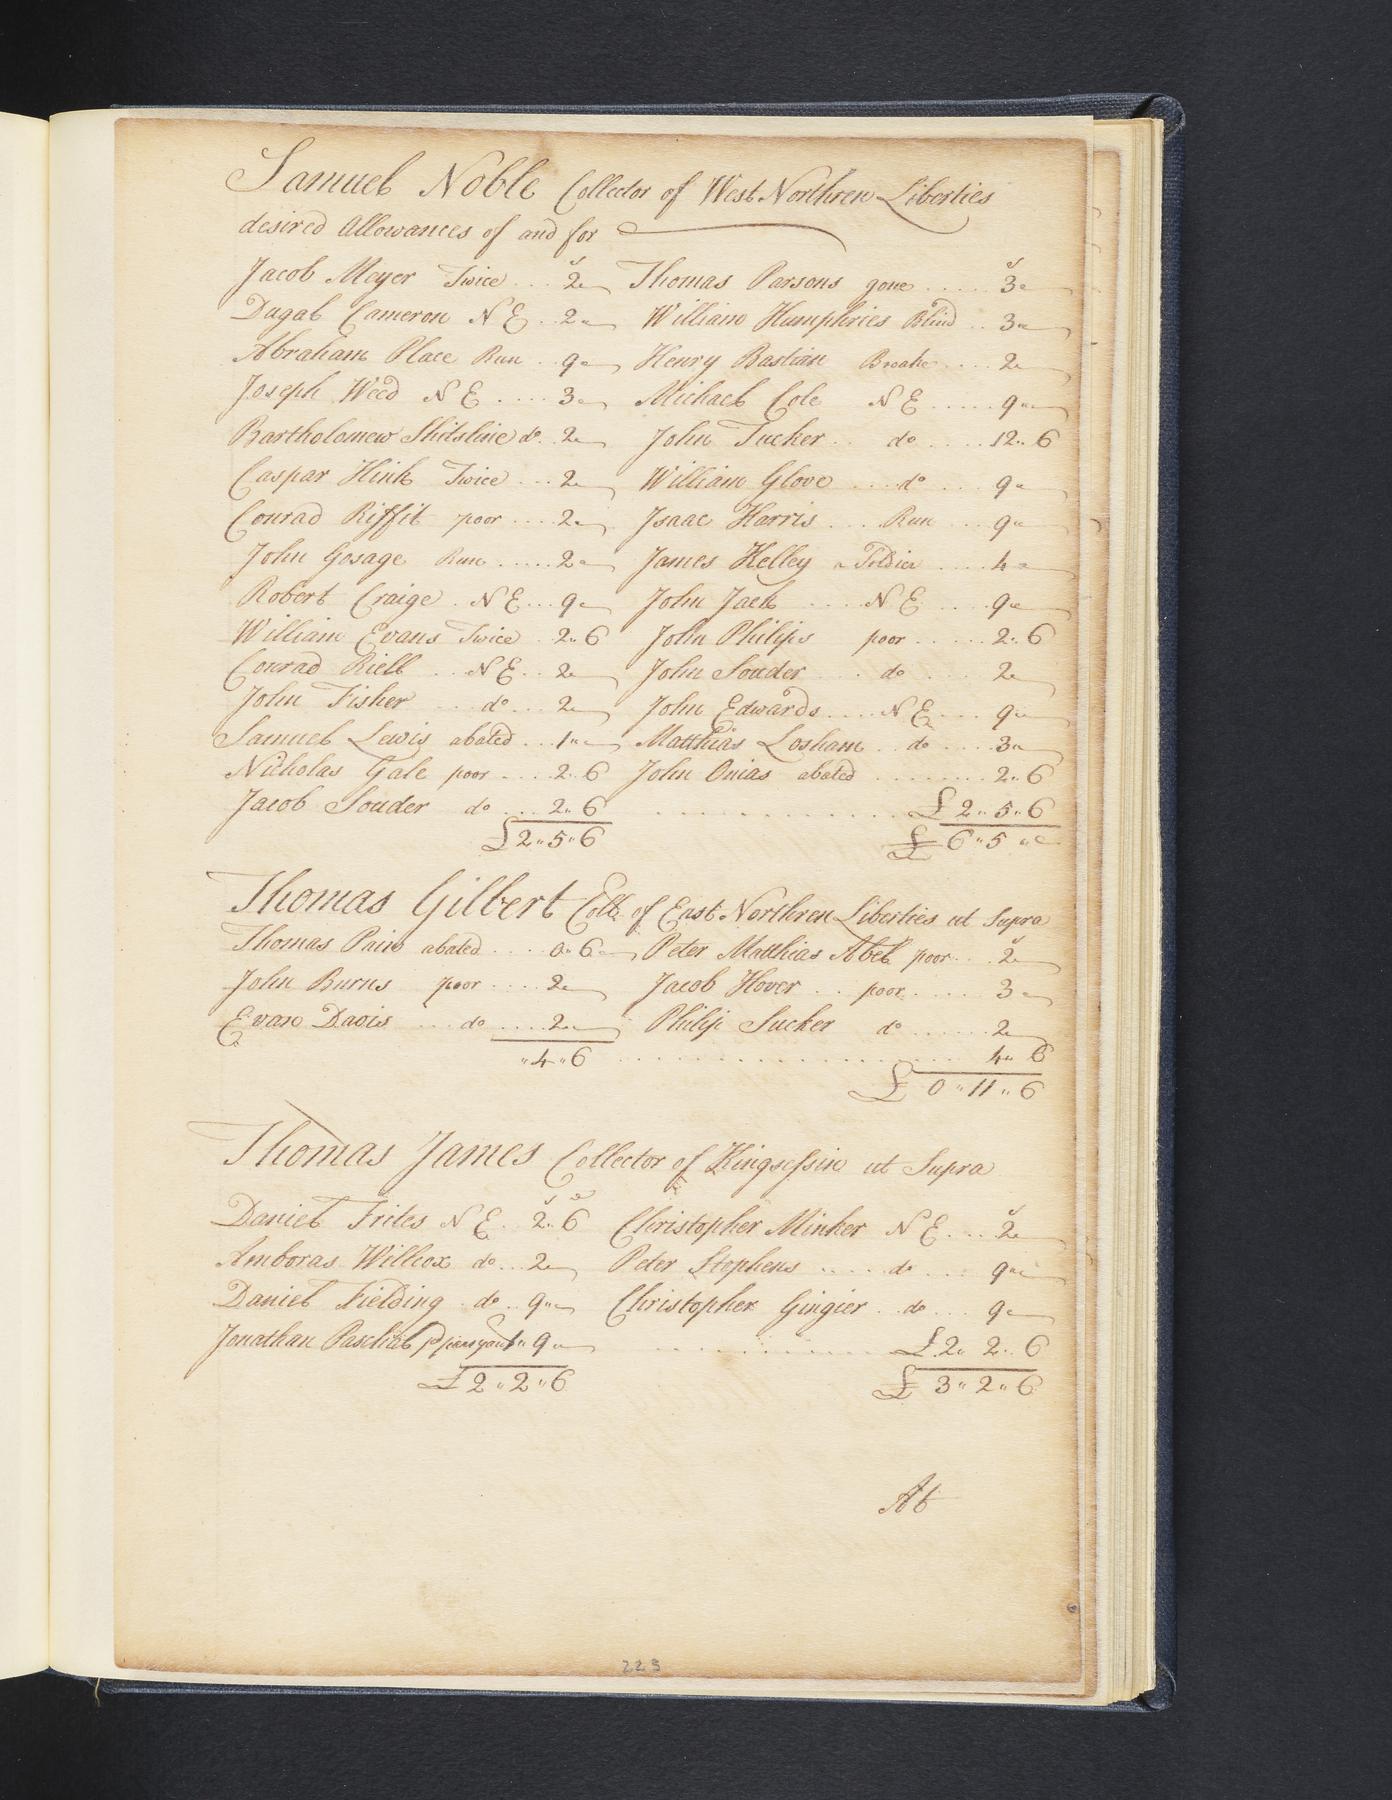 Samuel Noble Collector of West Northren Liberties
desired Allowances of and for
Jacob Meyer Twice ... 2 Thomas Parsons gone ..... 3
Dugal Cameron N E .. 2 William Humphries Blind .. 3
Abraham Place Run .. 9 Henry Bastian Broake .... 2
Joseph Weed N E .... 3 Michael Cole N E ..... 9
Bartholomew Shitsline do. 2 John Tucker .. do ..... 12..6
Caspar Hink Twice ... 2 William Glove .... do ... 9
Conrad Riffit poor .... 2 Isaac Harris ... Run ... 9
John Gosage Run ..... 2 James Kelley a Soldier .... 4
Robert Craige . N E ... 9 John Jack ..... N E .... 9
William Evans Twice .. 2..6 John Philips poor ...... 2..6
Conrad Riell .. N E .. 2 John Souder ... do .... 2
John Fisher ... do ... 2 John Edwards .... N E .... 9
Samuel Lewis abated ... 1 Matthias Losham .. do .... 3
Nicholas Gale poor .... 2..6 John Onias abated ........ 2..6
Jacob Souder do .... 2..6 .............. £2..5..6
£2..5..6 £6..5
Thomas Gilbert Coll. of East Northren Liberties ut Supra
Thomas Pain abated .... 0..6 Peter Matthias Abel poor ... 2
John Burns poor .... 2 Jacob Hover .. poor ..... 3
Evan Davis ... do .... 2 Philip Sucker do ...... 2
..4..6 .................. 4..6
£ 0..11..6
Thomas James Collector of Kingsessin ut Supra
Daniel Frites N E .. 2..6 Christopher Minker N E ... 2
Amboras Willcox do ... 2 Peter Stephens ..... do ... 9
Daniel Fielding . do .. 9 Christopher Gingier . do ... 9
Jonathan Paschal 1..9 ............ £2..2..6
£2..2..6 £3..2..6
At
223